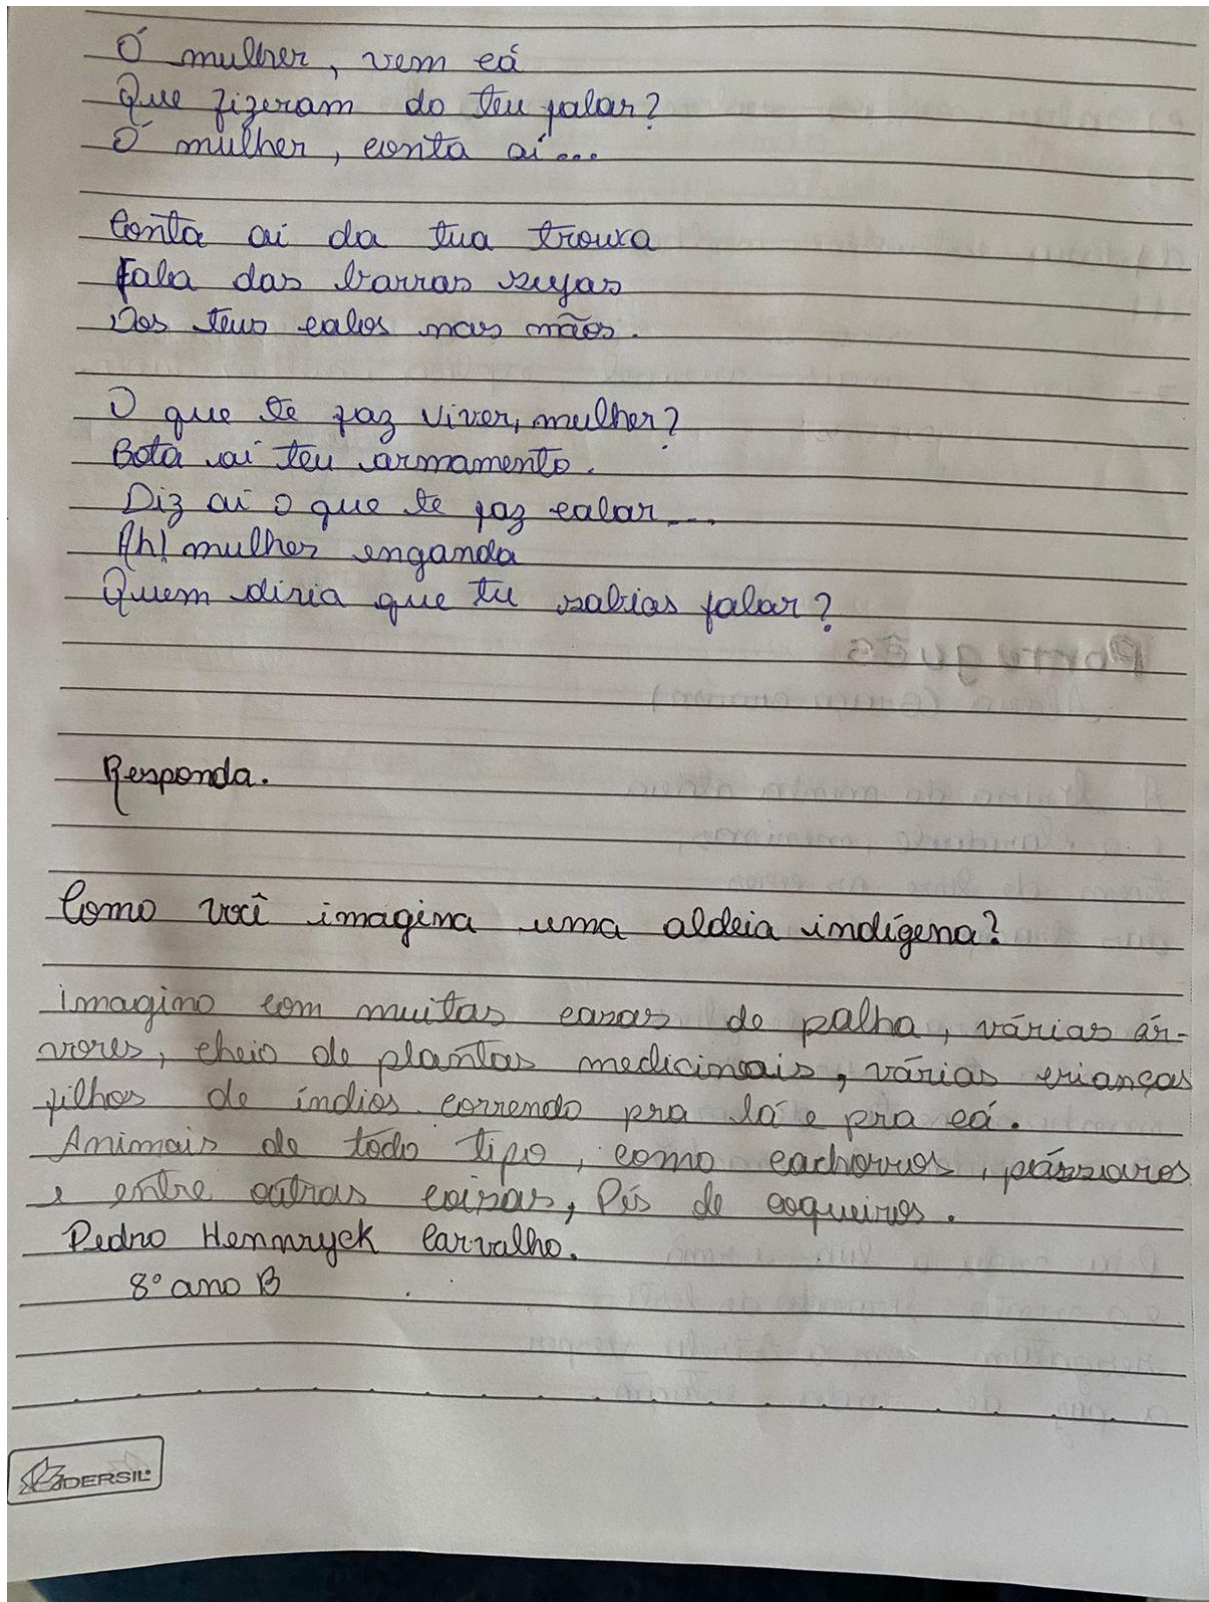 Ó mulher, vem cá
Que fizeram do teu falar?
Ó mulher, conta aí...
Conta aí da tua trouxa
Fala das barras sujas
Dos teus calos nas mãos.
O que te faz viver, mulher?
Bota aí teu armamento.
Diz aí o que te faz calar....
Ah! mulher enganda
Quem diria que tu sabias falar?
Português
Responda.
Como você imagina uma aldeia indígena?
imagino com muitas casas de palha, várias ár-
vores, cheio de plantas medicinais, várias crianças
filhos de índios correndo pra lá e pra cá.
Animais de todo tipo, como cachorros, pássaros
e entre outras coisas, Pés de coqueiros.
Pedro Hennryck Carvalho.
8° ano B
DERSIL